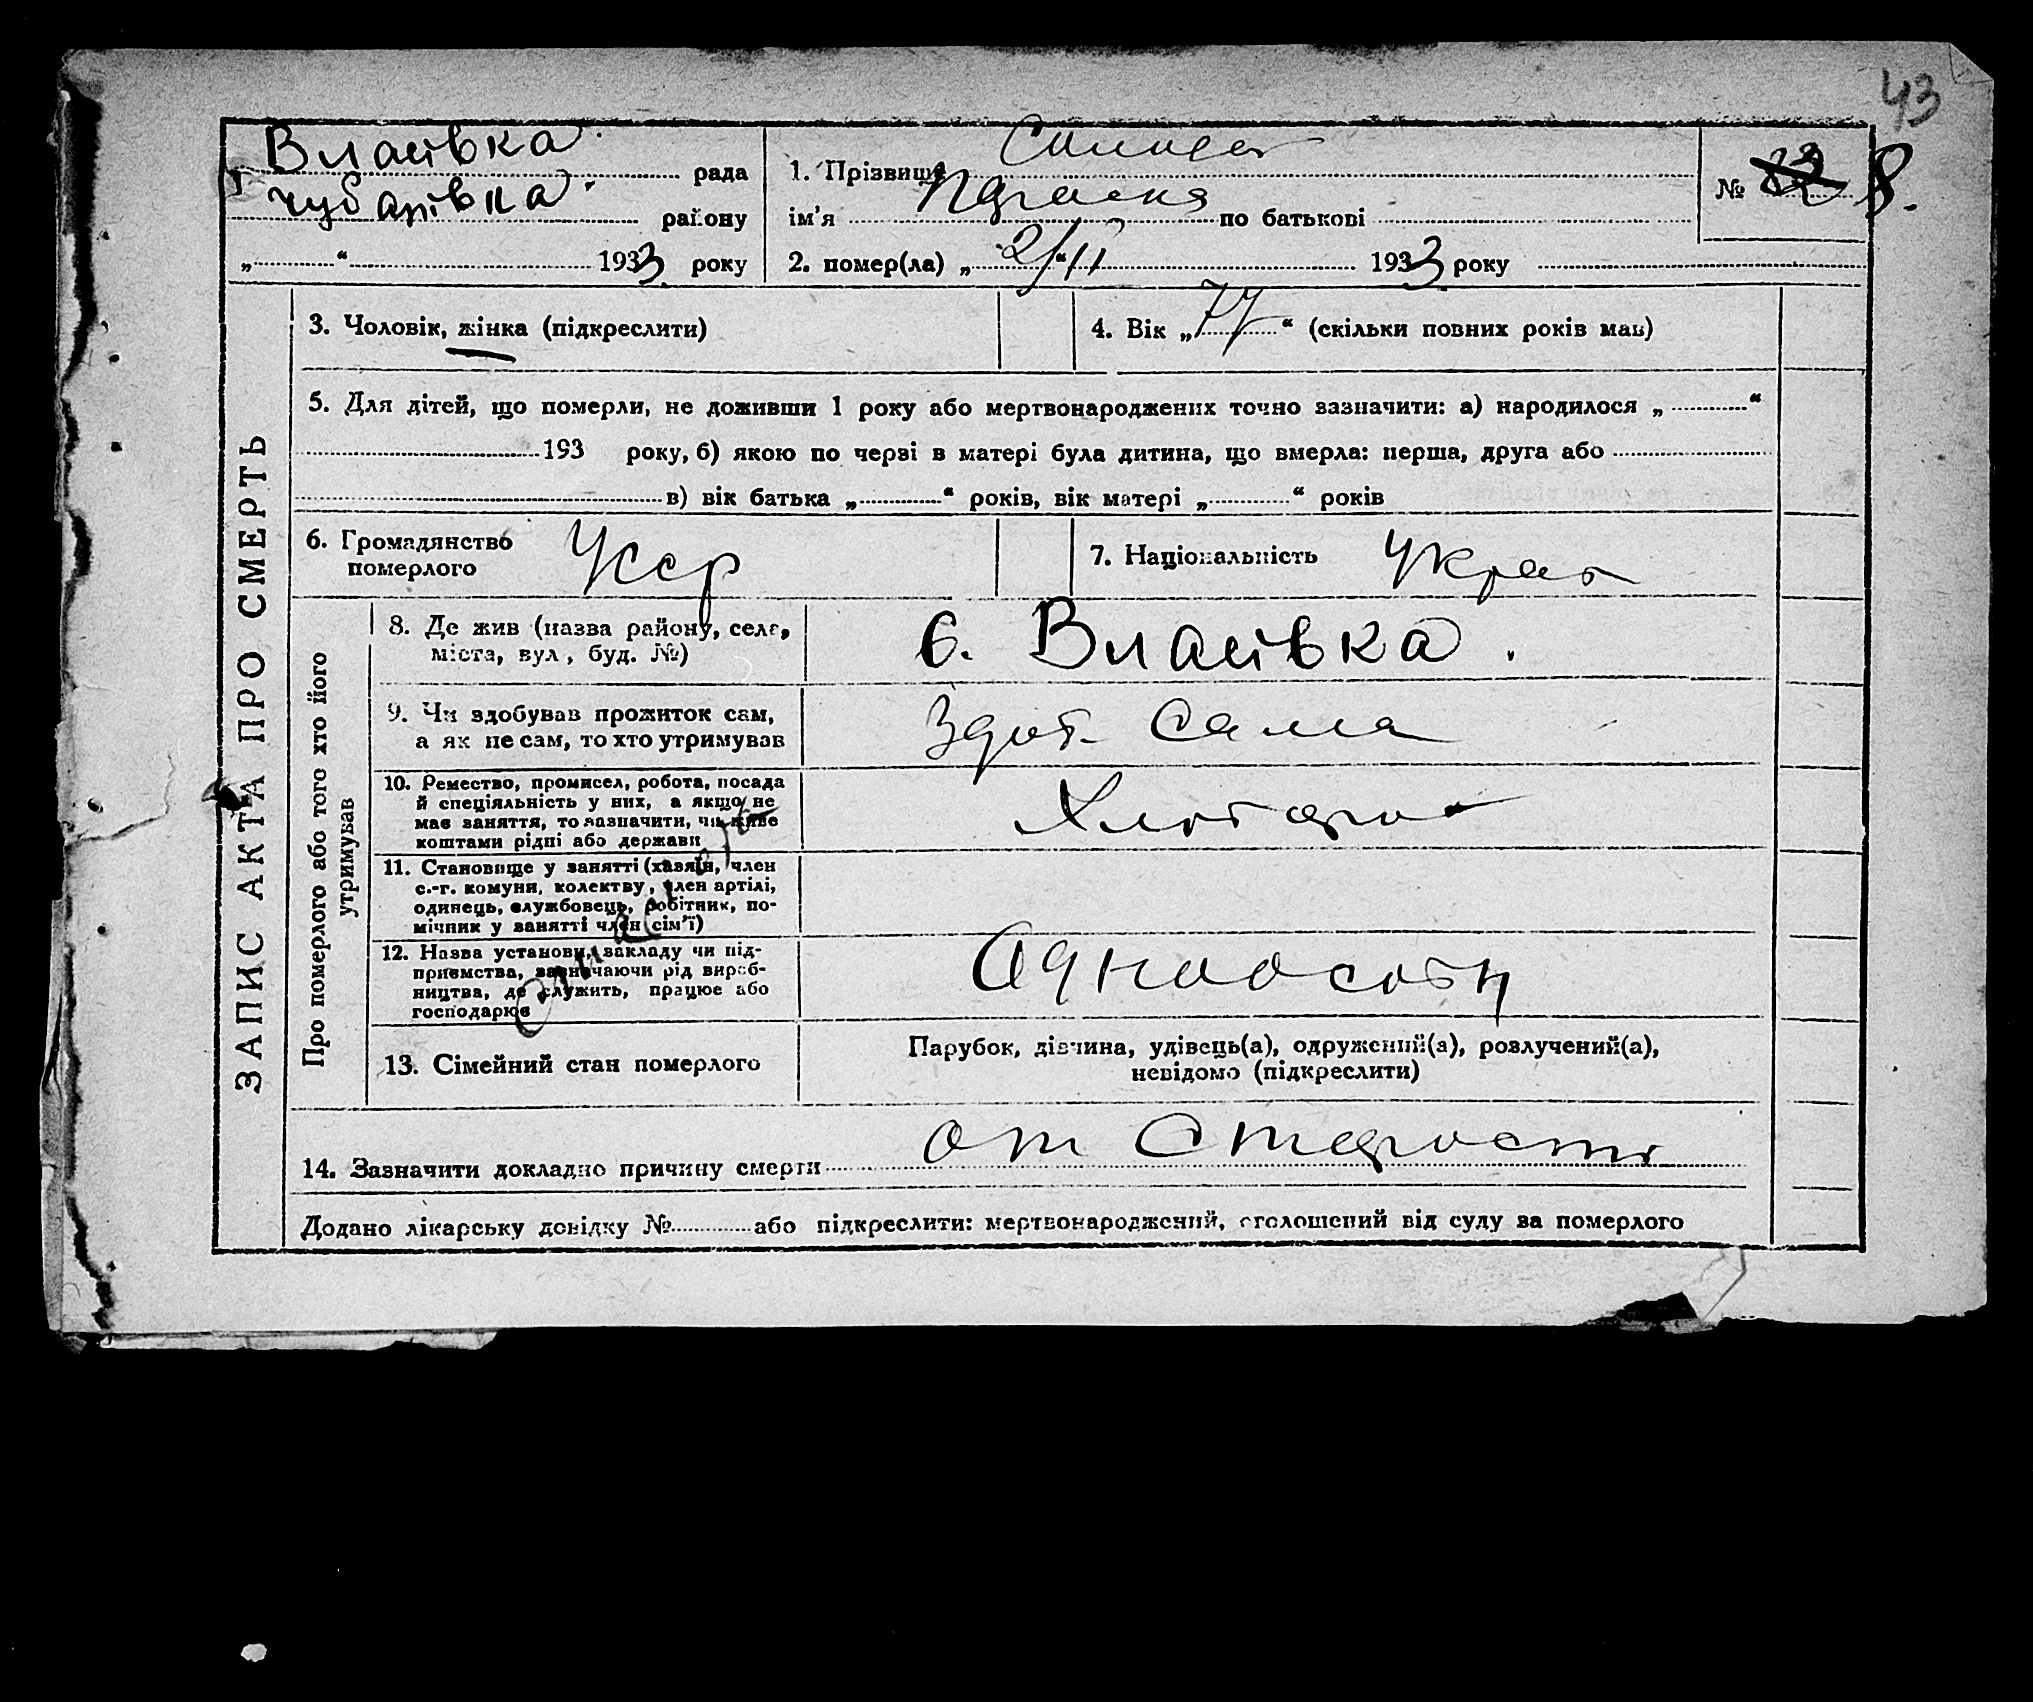 43
Власівка рада
Чубарівка району
„ “ 1933 року
1. Прізвище
ім’я по батькові
2. помер(ла) „2/“II 1933 року
№ 8.
ЗАПИС АКТА ПРО СМЕРТЬ
3. Чоловік, жінка (підкреслити)
4. Вік „77“ (скільки повних років мав)
5. Для дітей, що померли, не доживши 1 року або мертвонароджених точно зазначити: а) народилося „ “
193 року, б) якою по черзі в матері була дитина, що вмерла: перша, друга або
в) вік батька „ “ років, вік матері „ “ років
6. Громадянство
померлого
Усср
7. Національність Украв
Про померлого або того хто його
утримував
8. Де жив (назва району, села,
міста, вул, буд. №)
с. Власівка.
9. Чи здобував прожиток сам,
а як не сам, то хто утримував
Здоб. Сама
10. Ремество, промисел, робота, посада
й спеціяльність у них, а якщо не
має заняття, то зазначити, чи живе
коштами рідні або держави
Хлібороб
11. Становище у занятті (хазяїн, член
с.-г. комуни, колективу, член артілі,
одинець, службовець, робітник, по-
мічник у занятті член сім’ї)
12. Назва установи, закладу чи під-
приємства, зазначаючи рід вироб-
ництва, де служить, працює або
господарює
Одноособн
13. Сімейний стан померлого
Парубок, дівчина, удівець(а), одружений(а), розлучений(а),
невідомо (підкреслити)
14. Зазначити докладно причину смерти от Старости
Додано лікарську довідку № або підкреслити: мертвонароджений, оголошений від суду за померлого